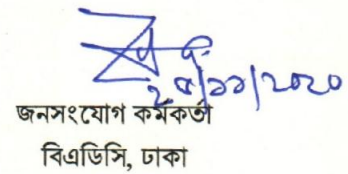 ২৫/১১/২০২০
জনসংযোগ কর্মকর্তা
বিএডিসি, ঢাকা